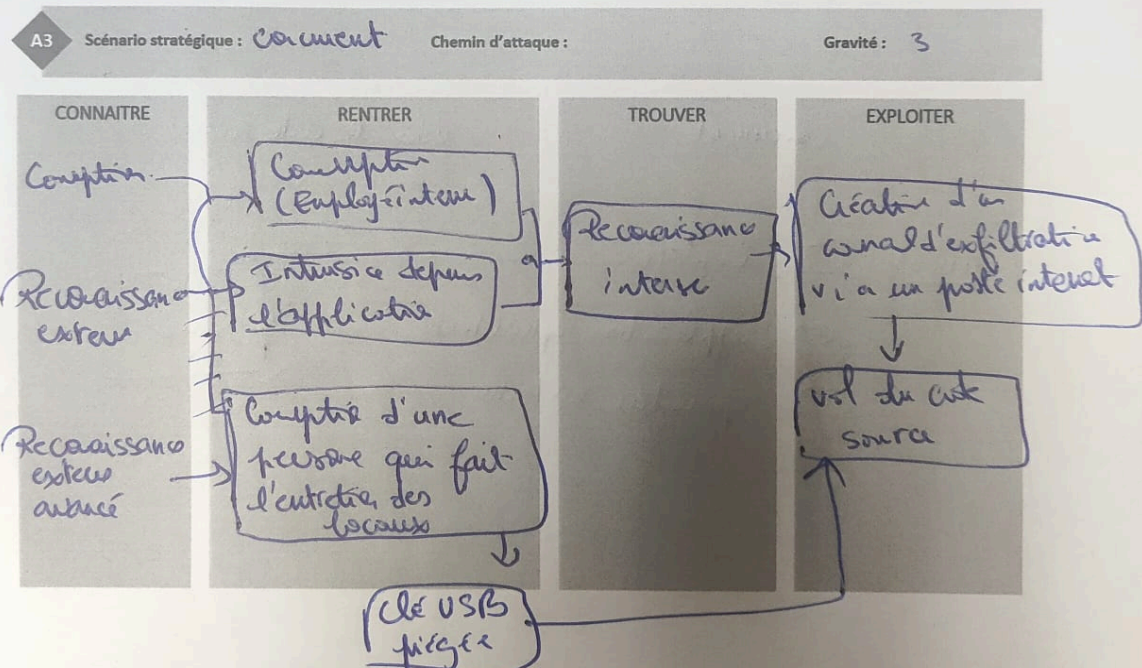 A3
Scénario stratégique :
Chemin d'attaque :
Gravité : 3
CONNAITRE
RENTRER
TROUVER
EXPLOITER
Reconnaissance
externe
Reconnaissance
externe
avancé
Corruption
(Employé interne)
Intrusion depuis
l'application
d'une
personne qui fait
l'entretien des
locaux
Clé USB
piégée
Reconnaissance
interne
Création d'un
canal d'exfiltration
via un poste internet
vol du code
source